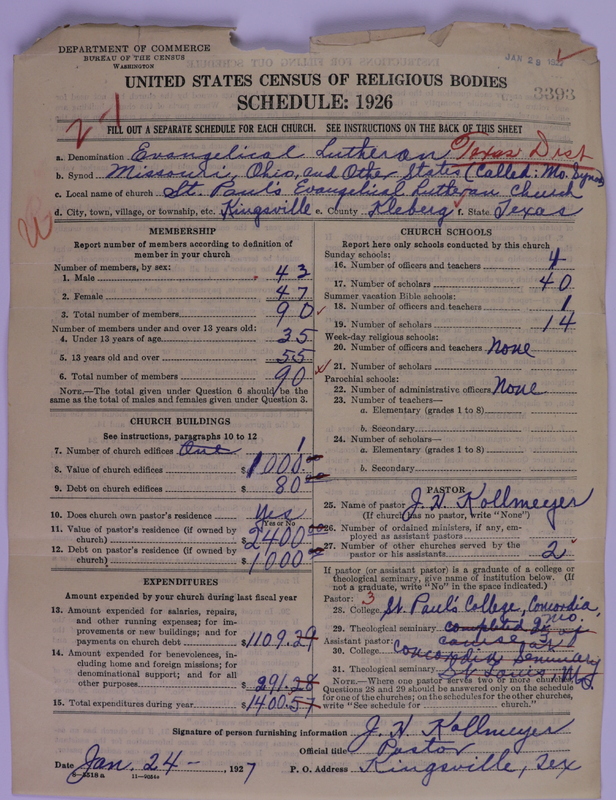 DEPARTMENT OF COMMERCE
BUREAU OF THE CENSUS
WASHINGTON
JAN 29
3393
UNITED STATES CENSUS OF RELIGIOUS BODIES
SCHEDULE: 1926
2-1
FILL OUT A SEPARATE SCHEDULE FOR EACH CHURCH. SEE INSTRUCTIONS ON THE BACK OF THIS SHEET
a. Denomination Evangelical Lutheran Texas Dist
b. Synod Missouri, Ohio, and Other States (Called: Mo. Synod)
c. Local name of church St. Paul's Evangelical Lutheran Church
d. City, town, village, or township, etc. Kingsville e. County Kleberg f. State Texas
MEMBERSHIP
Report number of members according to definition of
member in your church
Number of members, by sex:
1. Male 43
2. Female 47
3. Total number of members 90
Number of members under and over 13 years old:
4. Under 13 years of age 35
5. 13 years old and over 55
6. Total number of members 90
NOTE.—The total given under Question 6 should be the
same as the total of males and females given under Question 3.
CHURCH BUILDINGS
See instructions, paragraphs 10 to 12
7. Number of church edifices One 1
8. Value of church edifices $1000.00
9. Debt on church edifices $80.00
10. Does church own pastor's residence Yes
(Yes or No)
11. Value of pastor's residence (if owned by
church) $2400.00
12. Debt on pastor's residence (if owned by
church) $1000.00
EXPENDITURES
Amount expended by your church during last fiscal year
13. Amount expended for salaries, repairs,
and other running expenses; for im-
provements or new buildings; and for
payments on church debt $1109.29
14. Amount expended for benevolences, in-
cluding home and foreign missions; for
denominational support; and for all
other purposes $291.28
15. Total expenditures during year $1400.57
CHURCH SCHOOLS
Report here only schools conducted by this church
Sunday schools:
16. Number of officers and teachers 4
17. Number of scholars 40
Summer vacation Bible schools:
18. Number of officers and teachers 1
19. Number of scholars 14
Week-day religious schools:
20. Number of officers and teachers None
21. Number of scholars
Parochial schools:
22. Number of administrative officers None
23. Number of teachers—
a. Elementary (grades 1 to 8)
b. Secondary
24. Number of scholars—
a. Elementary (grades 1 to 8)
b. Secondary
PASTOR
25. Name of pastor J. H. Kollmeyer
(If church has no pastor, write "None")
26. Number of ordained ministers, if any, em-
ployed as assistant pastors
27. Number of other churches served by the
pastor or his assistants 2
If pastor (or assistant pastor) is a graduate of a college or
theological seminary, give name of institution below. (If
not a graduate, write "No" in the space indicated.)
Pastor: 3
28. College St. Paul's College, Concordia, Mo.
29. Theological seminary completed
Assistant pastor: course at
30. College Concordia Seminary
31. Theological seminary St. Louis, Mo.
NOTE.—Where one pastor serves two or more churches,
Questions 28 and 29 should be answered only on the schedule
for one of the churches; on the schedules for the other churches,
write "See schedule for church."
Signature of person furnishing information J. H. Kollmeyer
Official title Pastor
Date Jan. 24 -, 1927
P. O. Address Kingsville, Tex